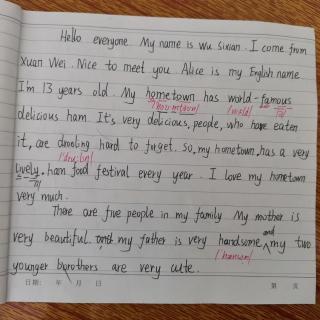 Hello everyone. My name is Wu Sixian. I come from
Xuan Wei. Nice to meet you. Alice is my English name
I'm 13 years old. My hometown has world-famous
/həʊmtaʊn/ /wɜːld/
delicious ham. It's very delicious, people, who have eaten
it, are drooling hard to forget. So, my hometown, has a very
/druːlɪŋ/
lively, ham food festival every year. I love my hometown
very much.
There are five people in my family. My mother is
very beautiful. and my father is very handsome and my two
/hænsəm/
younger brothers are very cute.
日期: 年 月 日 第 页